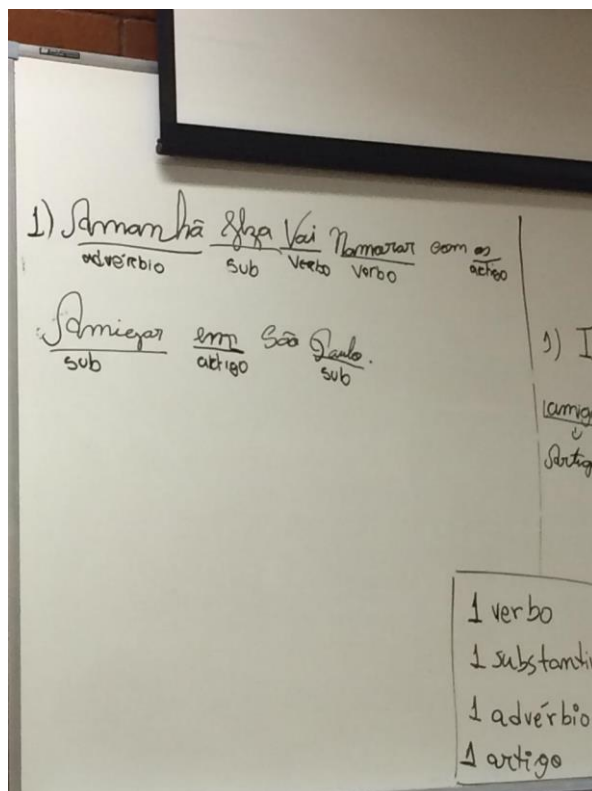 1) Amanhã Elza Vai Namorar com os
advérbio sub Verbo Verbo artigo
em São Paulo.
sub artigo sub
1) I
amig
Artig
1 verbo
1 substanti
1 advérbio
1 artigo